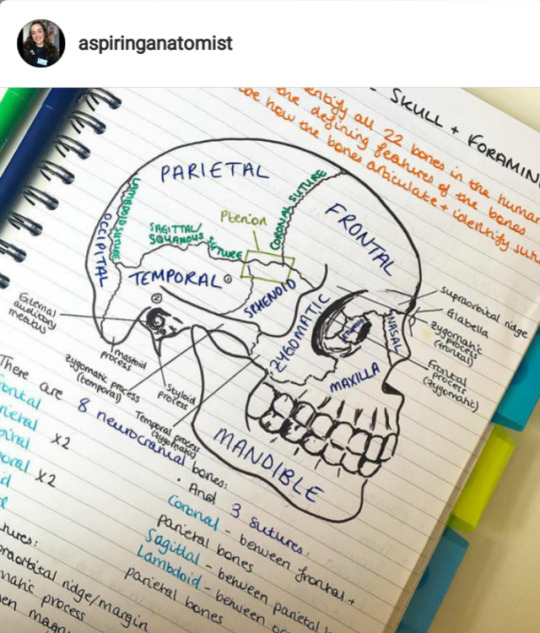 aspiringanatomist
- SKULL + FORAMIN
entify all 22 bones in the human
the defining features of the bones
be how the bones articulate + identify sut
PARIETAL
LAMBDOID SUTURE
OCCIPITAL
SAGITTAL/
SQUAMOUS SUTURE
Pterion
CORONAL SUTURE
FRONTAL
TEMPORAL
SPHENOID
ZYGOMATIC
NASAL
MAXILLA
MANDIBLE
supraorbital ridge
Glabella
zygomatic
process
(frontal)
Frontal
process
(zygomatic)
External
auditory
meatus
mastoid
process
zygomatic process
(temporal)
Styloid
process
Temporal process
(zygomatic)
There are 8 neurocranial bones:
rontal
rietal x2
oral x2
• And 3 sutures:
Coronal - between frontal +
parietal bones
Sagittal - between parietal
Lambdoid - between oc
parietal bones
tures:
praorbital ridge/margin
matic process
en magn